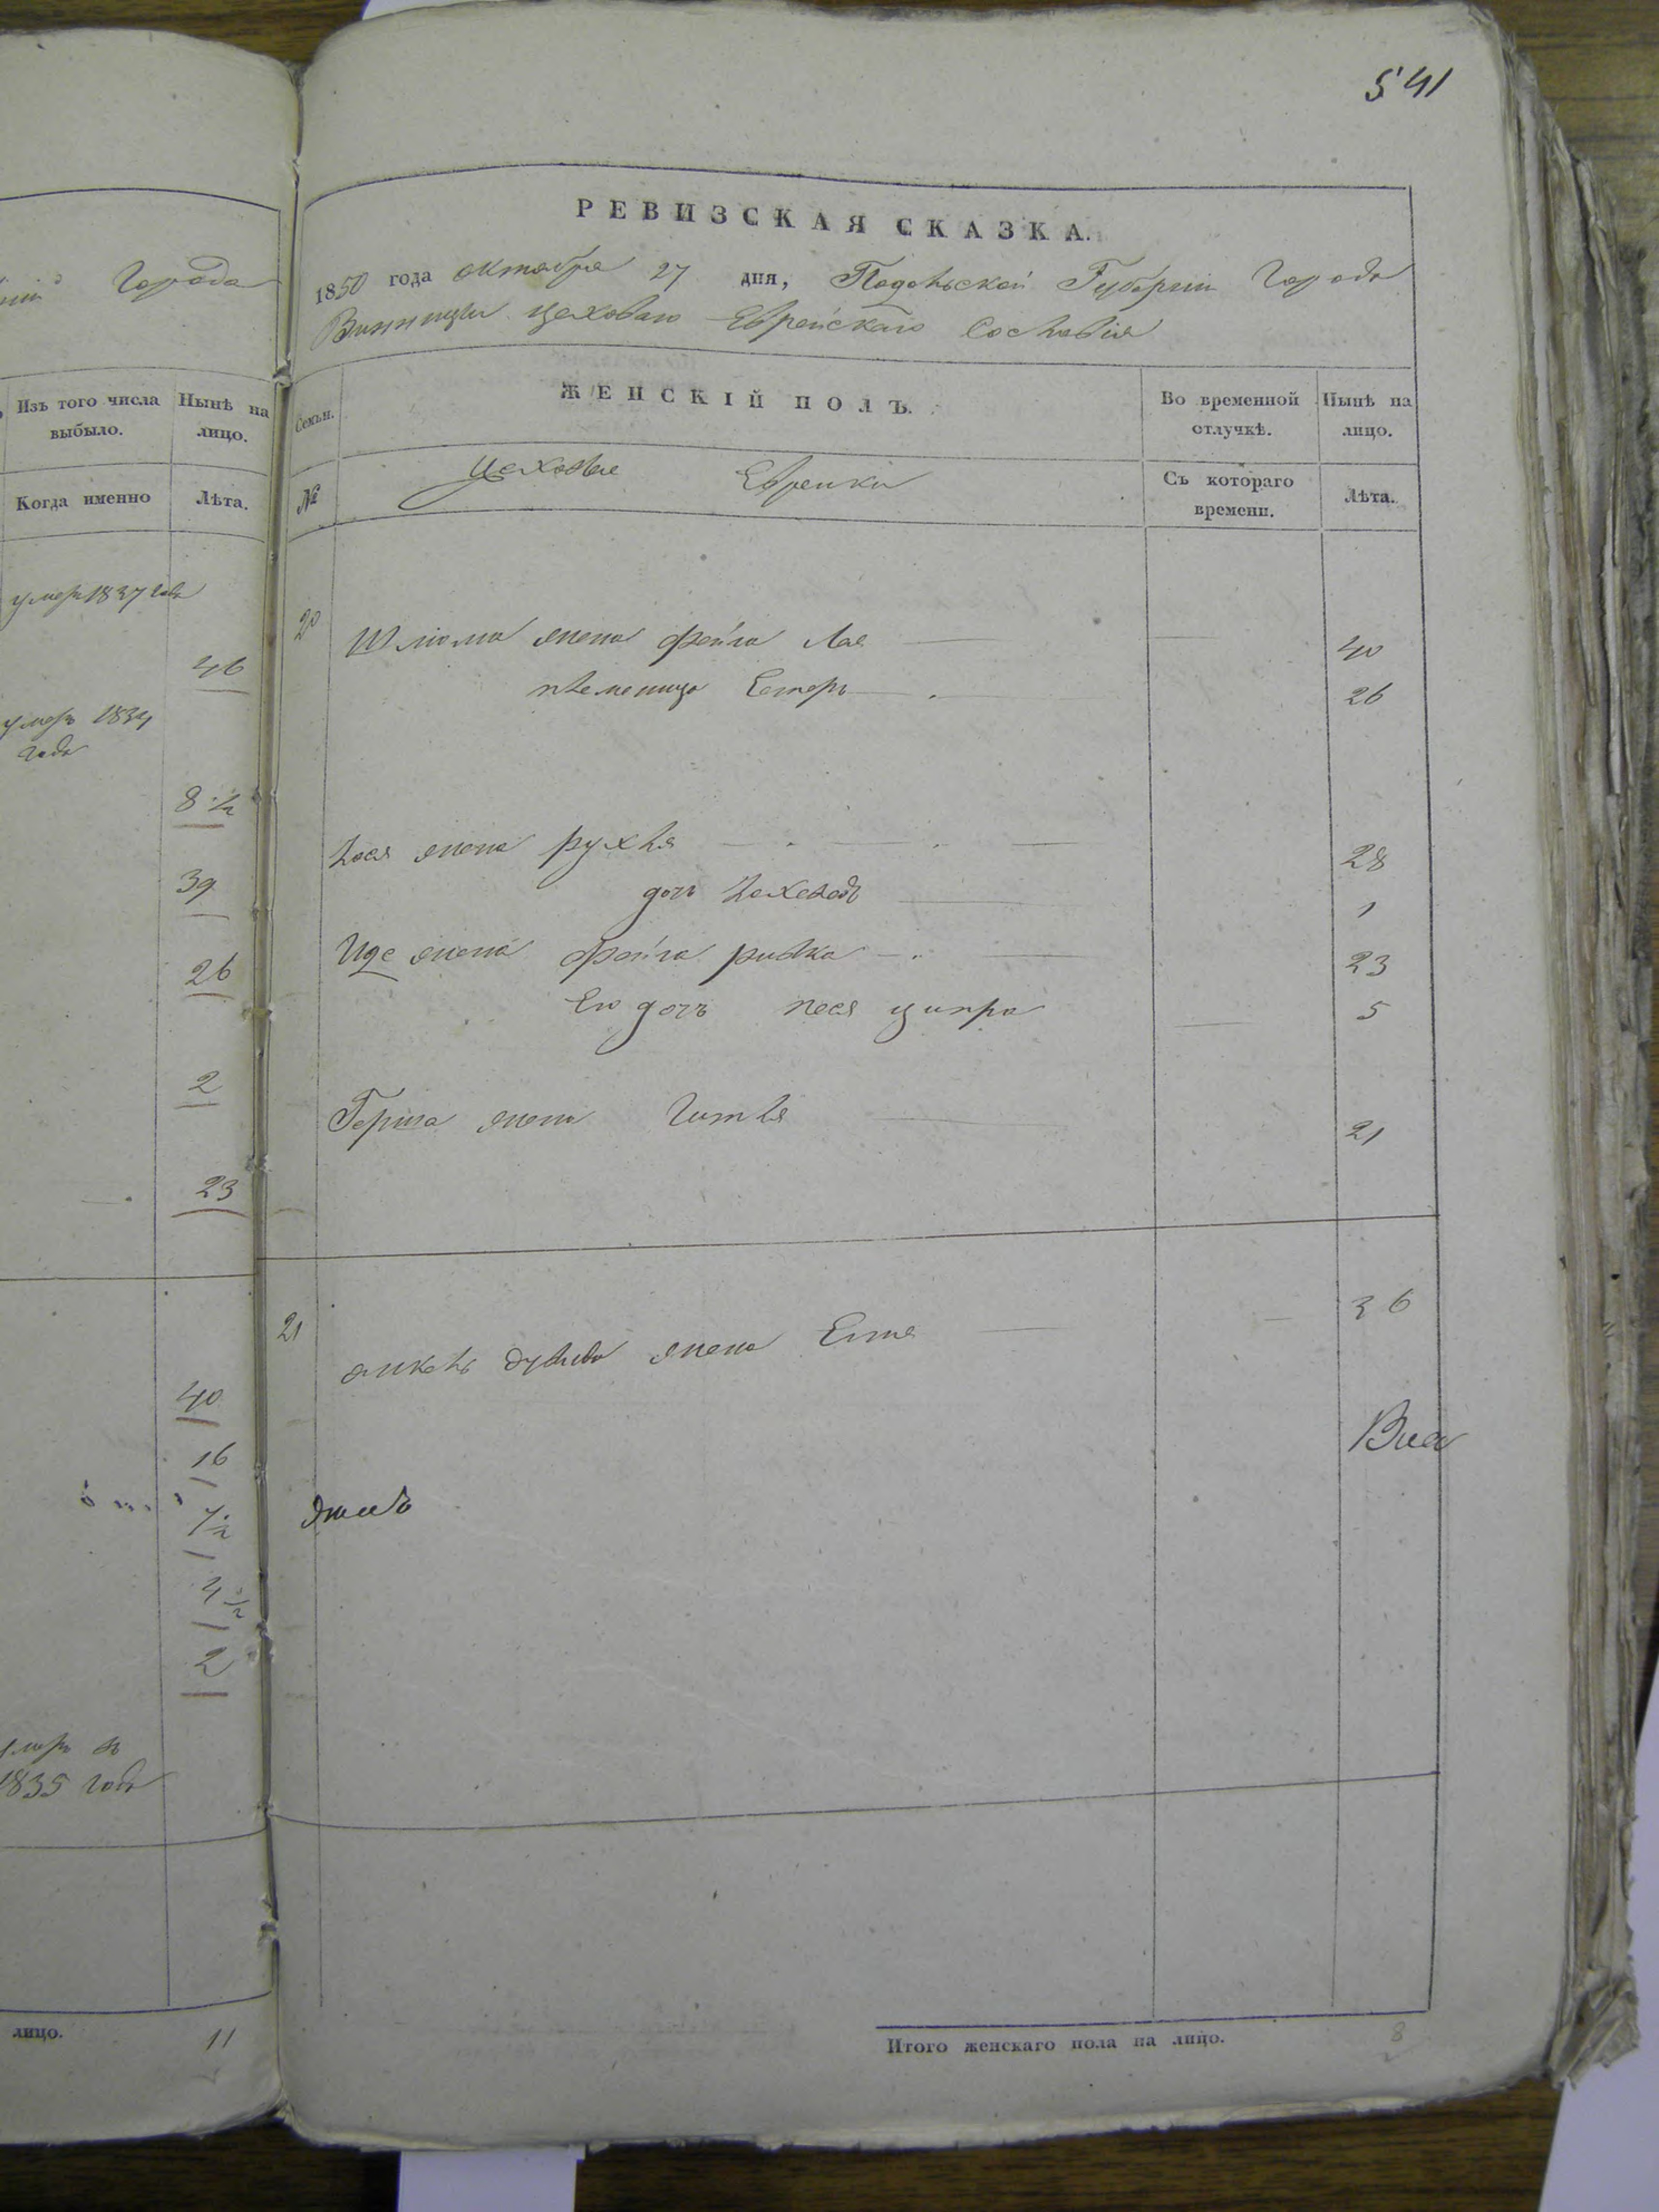 Города
Изъ того числа выбыло.
Нынѣ на лицо.
Когда именно
Лѣта.
умеръ 1837 года
46
умеръ 1834
года
8 ½
39
26
2
23
40
16
7 ½
4 ½
2
умеръ въ
1835 года
лицо. 11
541
РЕВИЗСКАЯ СКАЗКА.
1850 года октября 27 дня, Подольской Губерніи Города
Винницы цеховаго Еврейскаго Сословія
Семьи.
ЖЕНСКІЙ ПОЛЪ.
Во временной отлучкѣ.
Нынѣ на лицо.
№
Цеховые Еврейки
Съ котораго времени.
Лѣта.
20 Шлюма жена Фейга Лая 40
племеница Естеръ 26
жена Рухля 28
дочь 1
Иде жена Фейга Ривка 23
Его дочь Песя Ципра 5
Герша жена Гитля 21
21 жена 36
Итого женскаго пола на лицо. 8